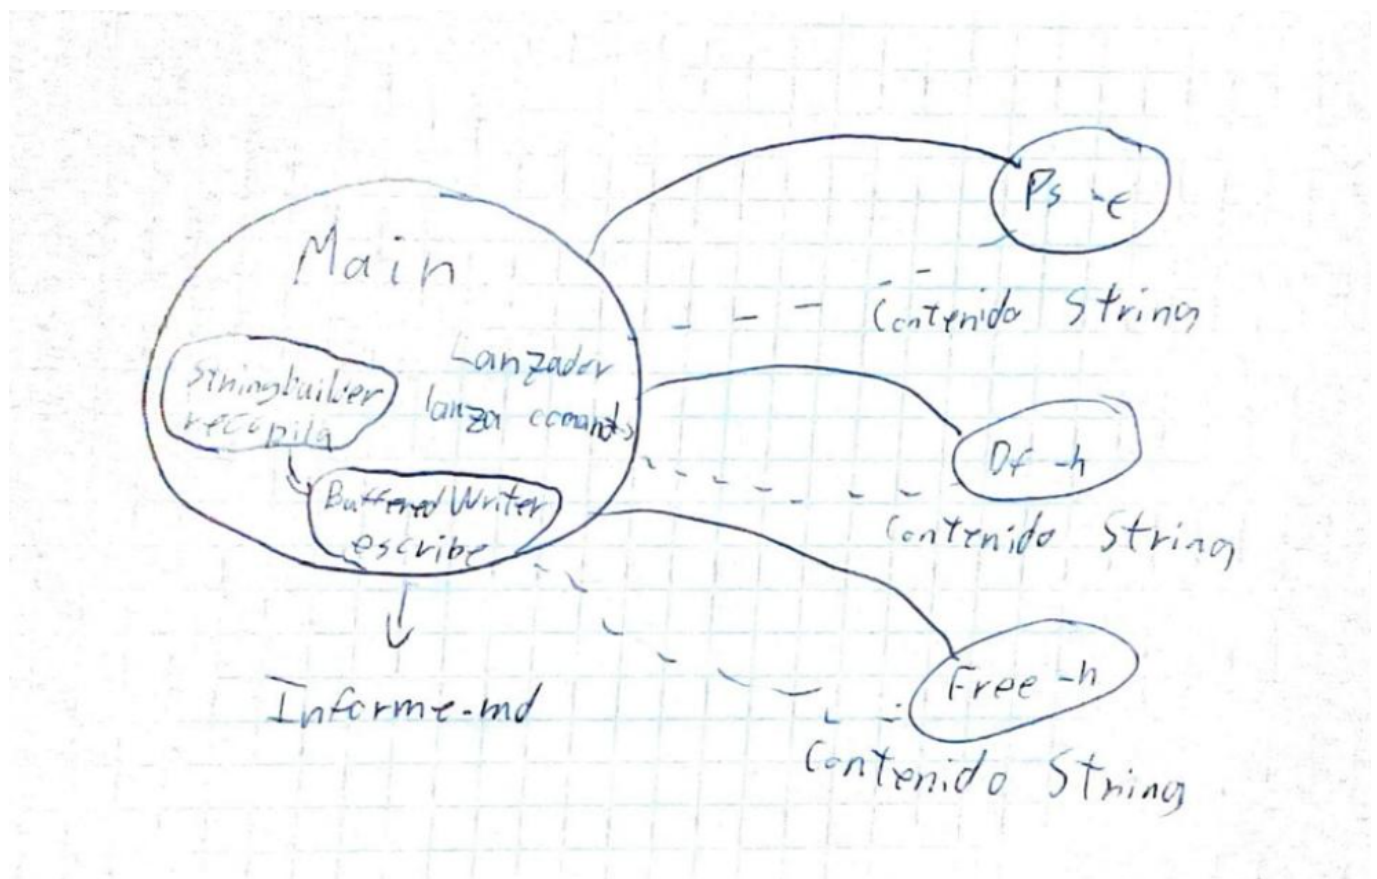 Main
Lanzador
lanza comandos
Stringbuilder
recopila
Buffered Writer
escribe
Informe.md
Ps -e
Contenido String
Df -h
Contenido String
Free -h
Contenido String